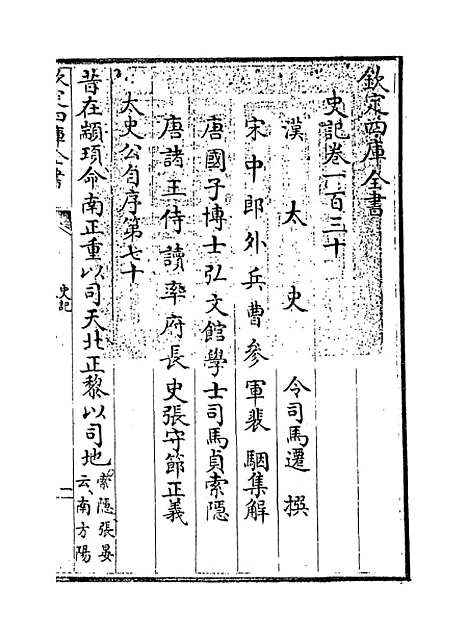 欽定四庫全書
史記卷一百三十
漢太史令司馬遷撰
宋中郎外兵曹參軍裴駰集解
唐國子博士弘文館學士司馬貞索隱
唐諸王侍讀率府長史張守節正義
太史公自序第七十
昔在顓頊命南正重以司天北正黎以司地索隱張晏
云南方陽
欽定四庫全書
史記